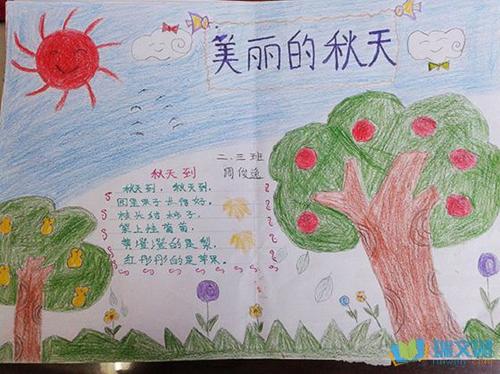 美丽的秋天
二.三班
周俊逸
秋天到
秋天到,秋天到,
田里果子长得好。
枝头结柿子,
架上挂葡萄。
黄澄澄的是梨,
红彤彤的是苹果。